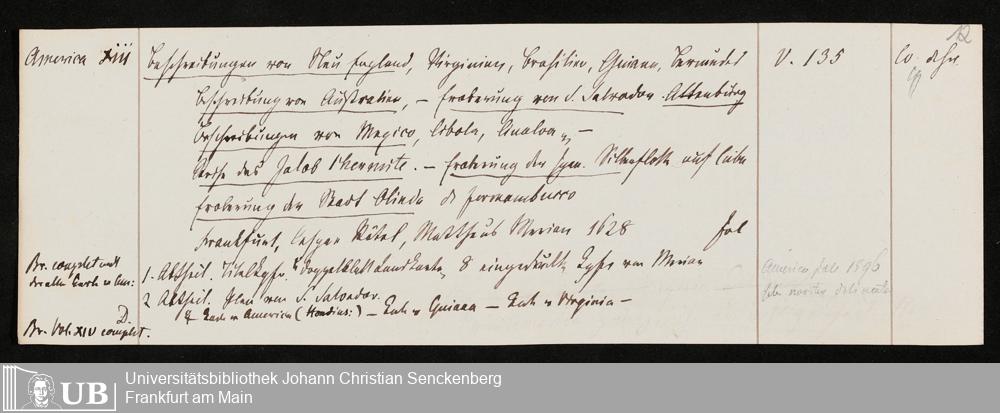 12
America XIII
Beschreibungen von Neu England, Virginien, Brasilien, Guiana, Bermudes
V. 135
Beschreibung von Australien, — Eroberung von S. Salvador Altenburg
Beschreibungen von Mexico, Cibola, Cinaloa, —
Reise des Jakob l'hermite. — Eroberung der Span. Silberflotte auf Cuba
Eroberung der Stadt Olinda de Fernambucco
Frankfurt, Caspar Rötel, Matthaeus Merian 1628 fol
Br. complet mit
1. Abtheil. Titelkpfr. Doppelblatt Landkarte, 8 eingedruckte Kpfr von Merian
2 Abtheil. Plan von S. Salvador.
Karte v America (Hondius:) — Karte v Guiana — Karte v Virginia —
Br. Vol. XIV complet.
America 1596
UB
Universitätsbibliothek Johann Christian Senckenberg
Frankfurt am Main